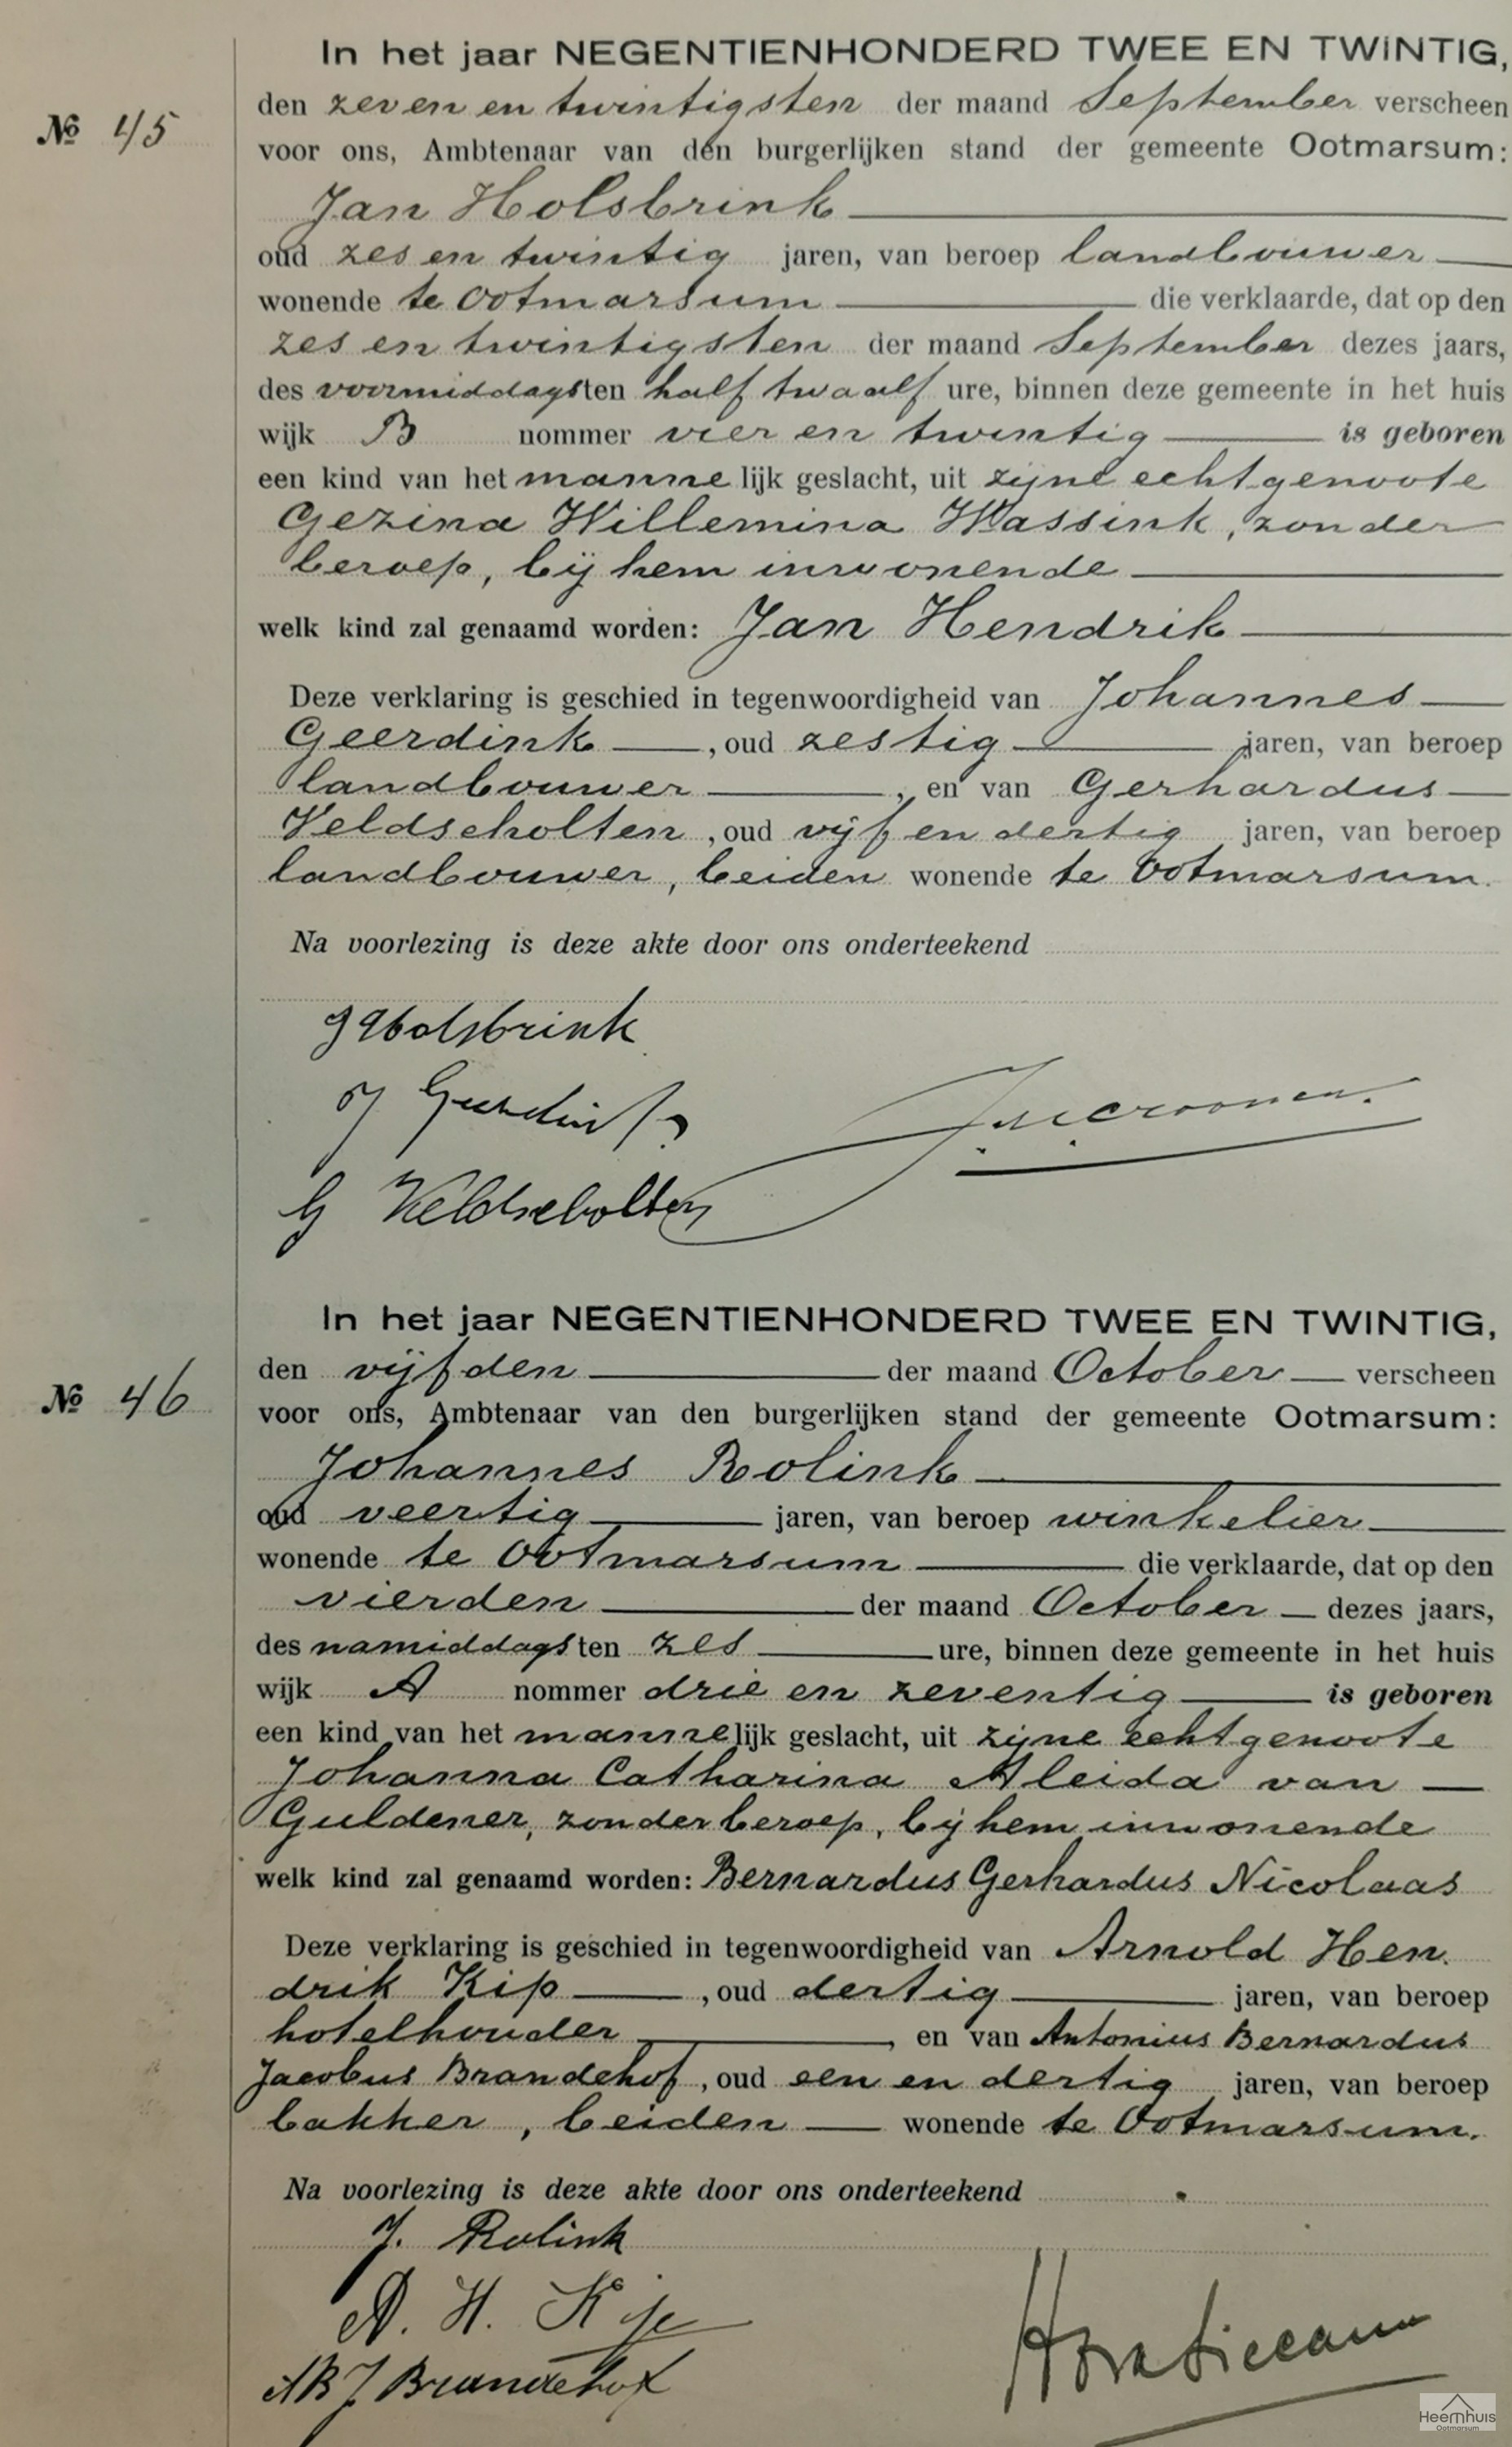 In het jaar NEGENTIENHONDERD TWEE EN TWINTIG,
№ 45
den zeven en twintigsten der maand September verscheen
voor ons, Ambtenaar van den burgerlijken stand der gemeente Ootmarsum:
Jan Holsbrink
oud zes en twintig jaren, van beroep landbouwer
wonende te Ootmarsum die verklaarde, dat op den
zes en twintigsten der maand September dezes jaars,
des voormiddags ten half twaalf ure, binnen deze gemeente in het huis
wijk B nommer vier en twintig is geboren
een kind van het mannelijk geslacht, uit zijne echtgenoote
Gezina Willemina Wassink, zonder
beroep, bij hem inwonende
welk kind zal genaamd worden: Jan Hendrik
Deze verklaring is geschied in tegenwoordigheid van Johannes
Geerdink, oud zestig jaren, van beroep
landbouwer, en van Gerhardus
Veldscholten, oud vijf en dertig jaren, van beroep
landbouwer, beiden wonende te Ootmarsum.
Na voorlezing is deze akte door ons onderteekend
J Holsbrink
J Geerdink
G Veldscholten
In het jaar NEGENTIENHONDERD TWEE EN TWINTIG,
den vijfden der maand October verscheen
№ 46
voor ons, Ambtenaar van den burgerlijken stand der gemeente Ootmarsum:
Johannes Rolink
oud veertig jaren, van beroep winkelier
wonende te Ootmarsum die verklaarde, dat op den
vierden der maand October dezes jaars,
des namiddags ten zes ure, binnen deze gemeente in het huis
wijk A nommer drie en zeventig is geboren
een kind van het mannelijk geslacht, uit zijne echtgenoote
Johanna Catharina Aleida van
Guldener, zonder beroep, bij hem inwonende
welk kind zal genaamd worden: Bernardus Gerhardus Nicolaas
Deze verklaring is geschied in tegenwoordigheid van Arnold Hen
drik Kip, oud dertig jaren, van beroep
hotelhouder, en van Antonius Bernardus
Jacobus Brandehof, oud een en dertig jaren, van beroep
bakker, beiden wonende te Ootmarsum.
Na voorlezing is deze akte door ons onderteekend
J. Rolink
A. H. Kip
A B J Brandehof
Heemhuis
Ootmarsum